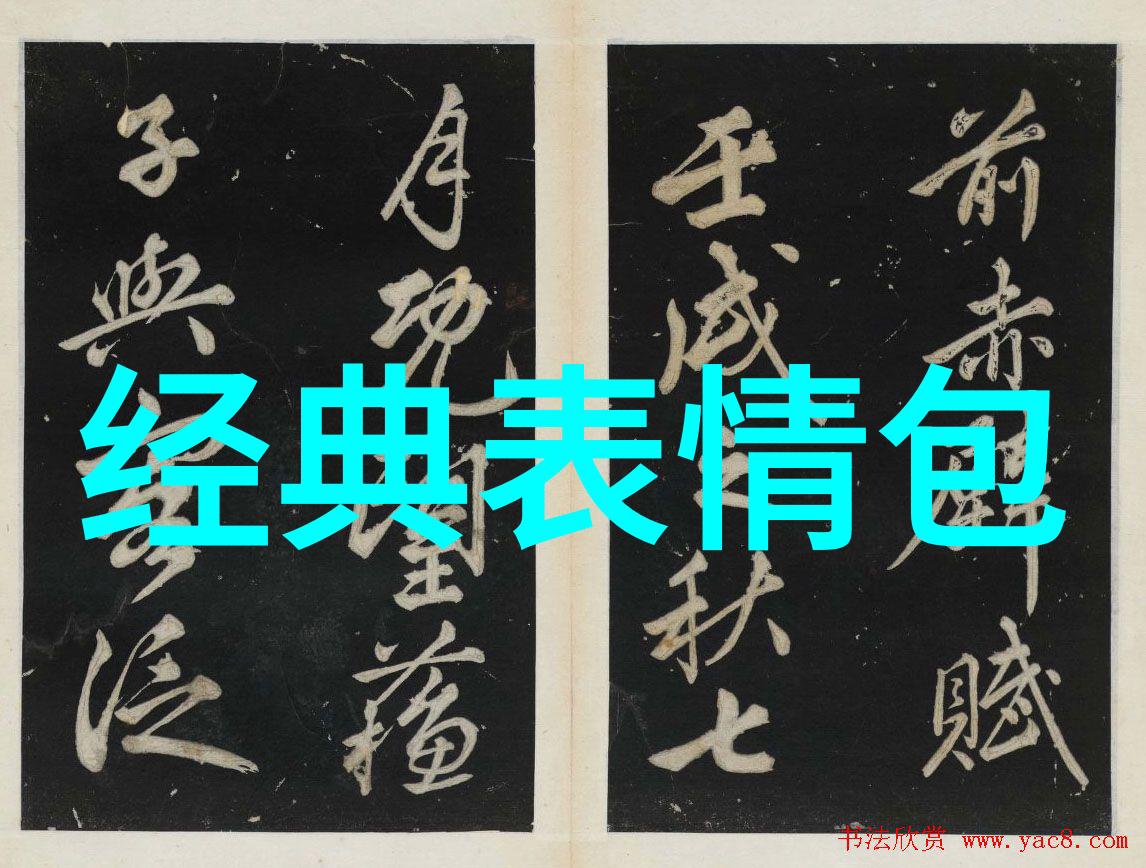 前赤壁賦
壬戌之秋七
月既望蘓
子與客泛
经典表情包
书法欣赏 www.yac8.com